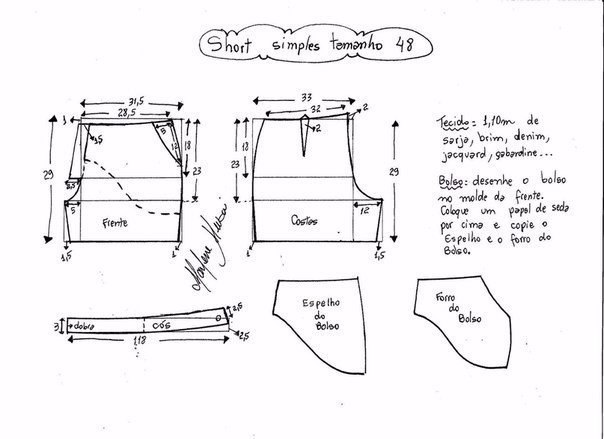 Short simples tamanho 48
31,5
28,5
1
1,5
5
12
18
23
29
3,5
5
Frente
1,5
33
32
2
2
18
23
29
12
Costas
1,5
Marlene Mukai
Tecido: 1,10m de
sarja, brim, denim,
jacquard, gabardine...
Bolso: desenhe o bolso
no molde da frente.
Coloque um papel de seda
por cima e copie o
Espelho e o forro do
Bolso.
3
dobra
cós
2,5
2,5
118
Espelho
do
Bolso
Forro
do
Bolso